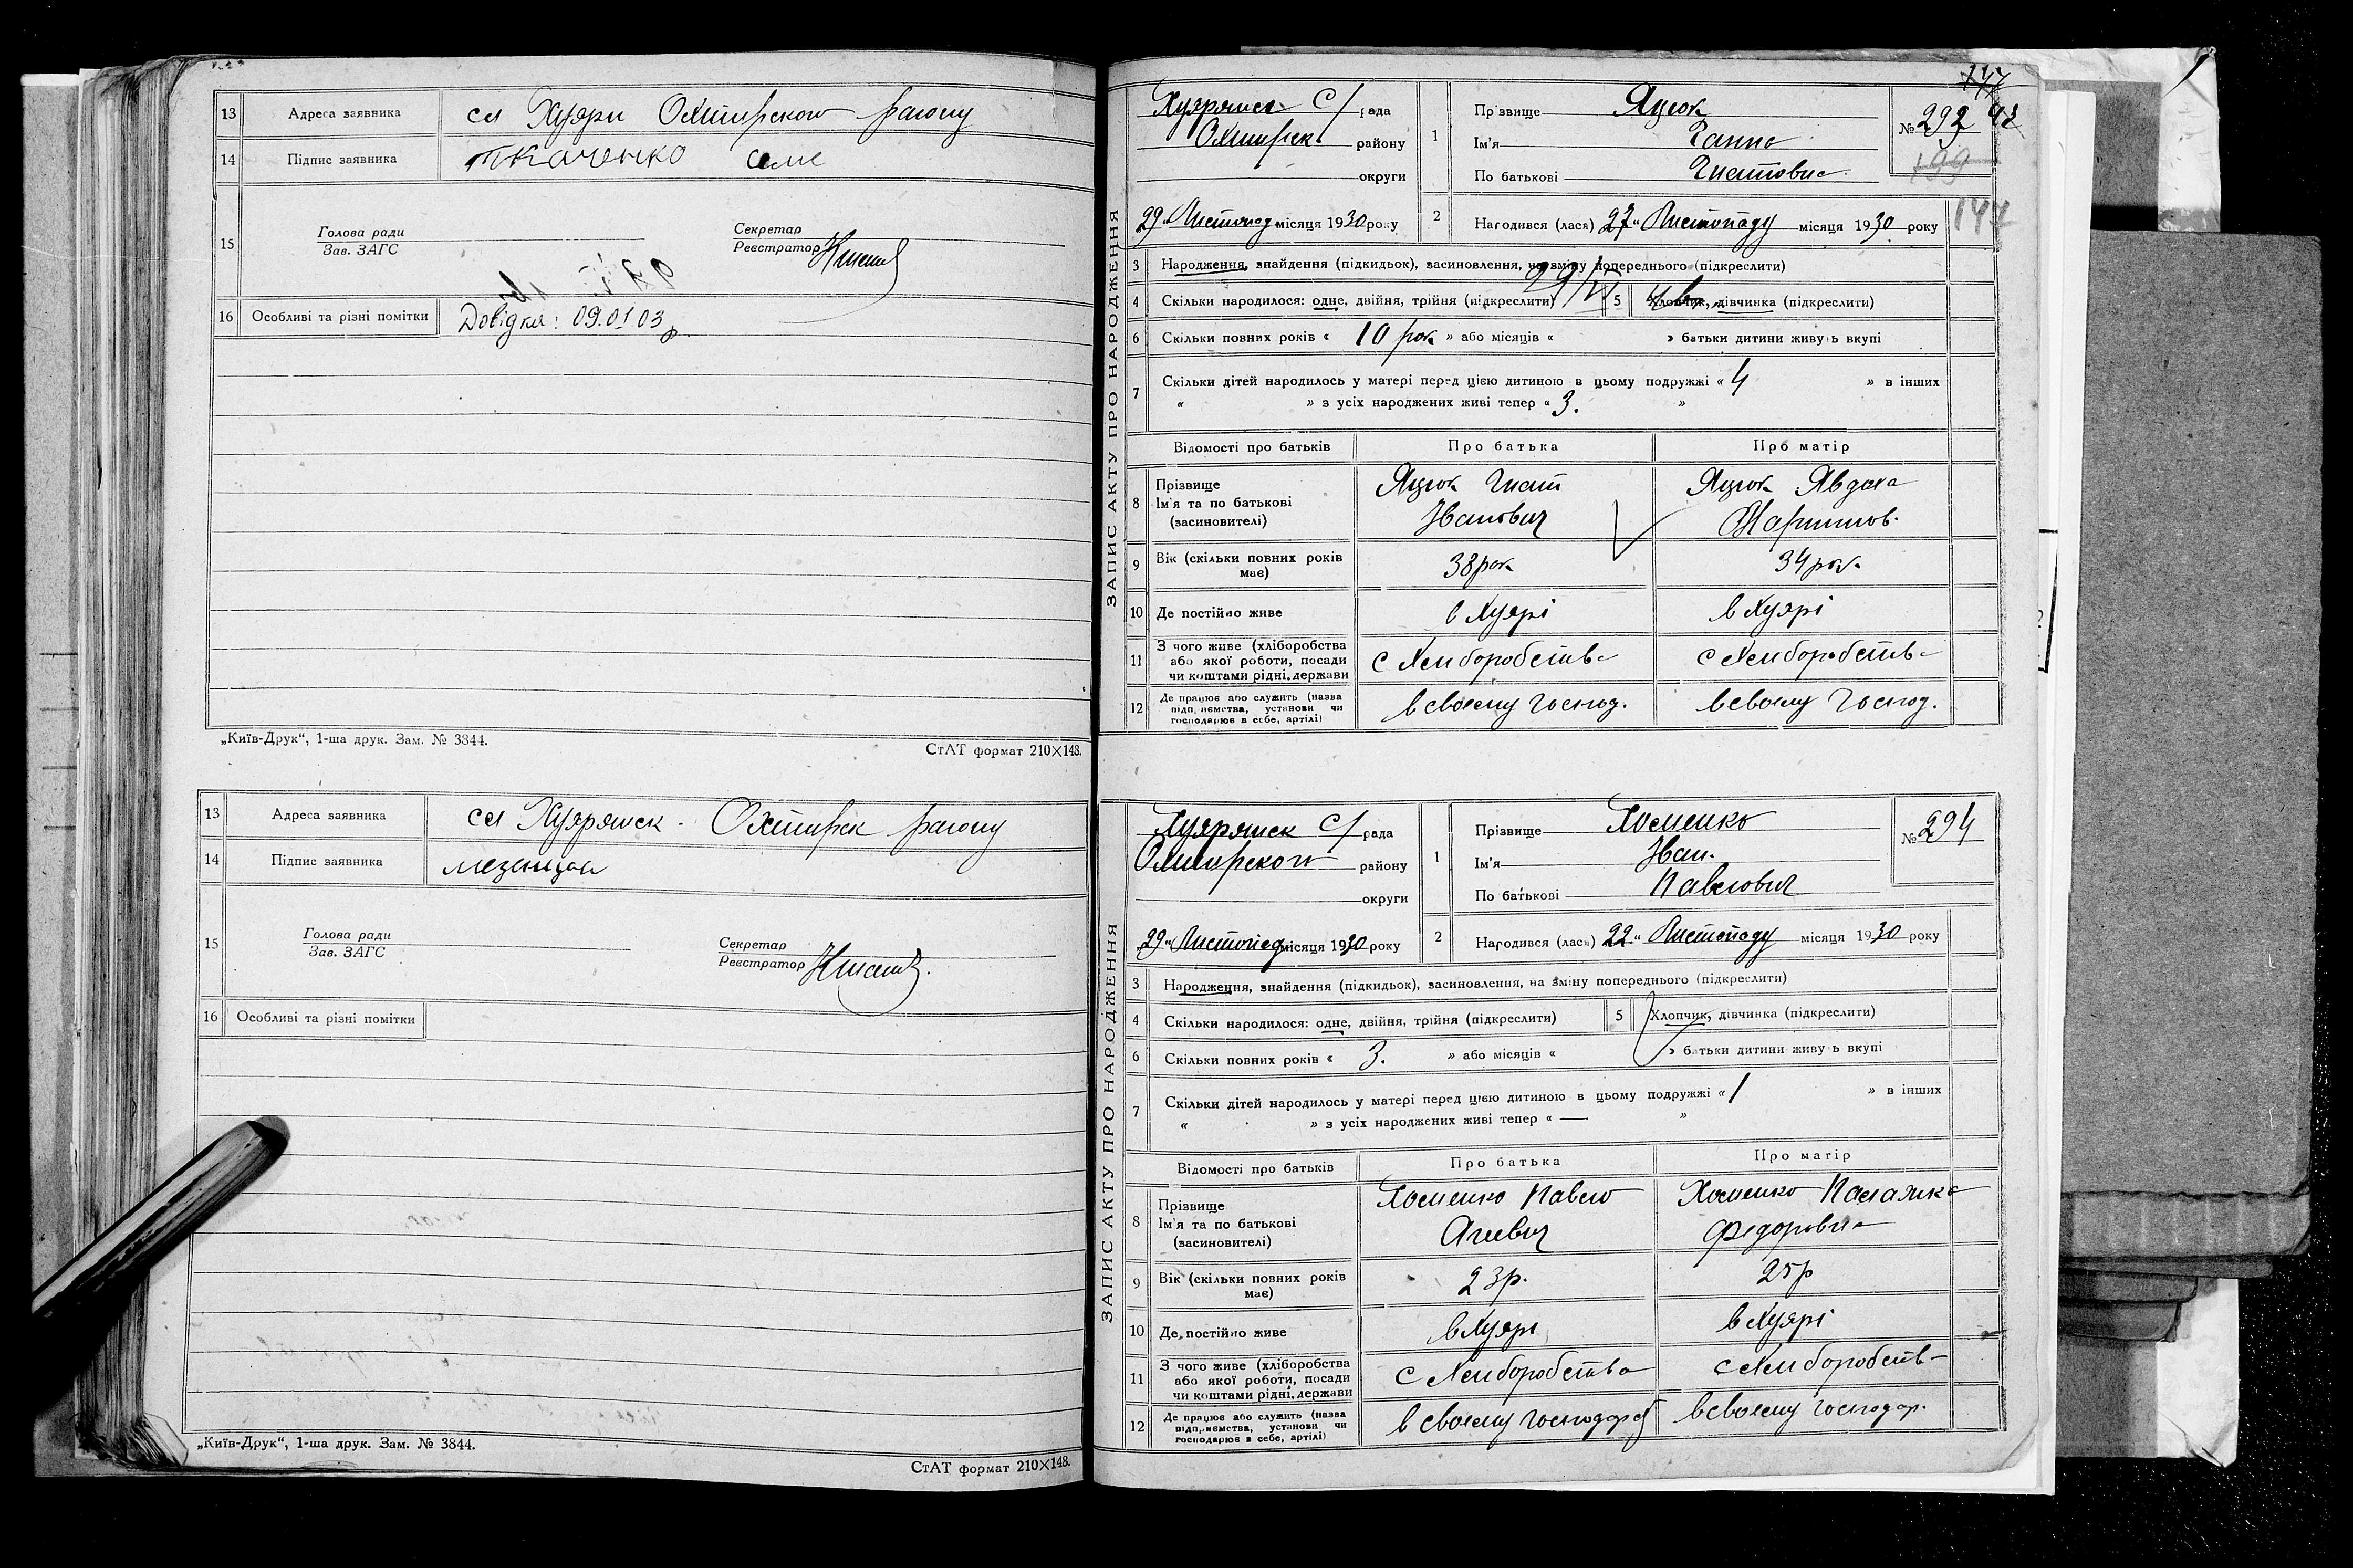 13 Адреса заявника сл Хухри Охтирского району
14 Підпис заявника Ткаченко
15 Голова ради
Зав. ЗАГС
Секретар
Реєстратор
16 Особливі та різні помітки Довідка: 09.01 03р
„Київ-Друк“, 1-ша друк. Зам. № 3844.
СтАТ формат 210×148.
13 Адреса заявника сл Охтирск району
14 Підпис заявника
15 Голова ради
Зав. ЗАГС
Секретар
Реєстратор
16 Особливі та різні помітки
„Київ-Друк“, 1-ша друк. Зам. № 3844.
СтАТ формат 210×148.
ЗАПИС АКТУ ПРО НАРОДЖЕННЯ
С/рада
Охтирск. району
округи
29 Листопад місяця 1930 року
1 Прізвище Яцюк
Ім'я Ганна
По батькові Гнатовна
№ 292
2 Народився (лася) 27 „ Листопаду місяця 1930 року
3 Народження, знайдення (підкидьок), засиновлення, на зміну попереднього (підкреслити)
4 Скільки народилося: одне, двійня, трійня (підкреслити) 5 Хлопчик, дівчинка (підкреслити)
6 Скільки повних років « 10 рок » або місяців « » батьки дитини живуть вкупі
7 Скільки дітей народилось у матері перед цією дитиною в цьому подружжі « 4 » в інших
« » з усіх народжених живі тепер « 3. »
Відомості про батьків Про батька Про матір
8 Прізвище
Ім'я та по батькові
(засиновителі)
Яцюк Гнат
Іванович
Яцюк Явдоха
Мартинов.
9 Вік (скільки повних років має) 38 рок 34 рок
10 Де постійно живе
11 З чого живе (хліборобства
або якої роботи, посади
чи коштами рідні, держави
с Хлиборобства с Хлиборобств
12 Де працює або служить (назва
підприємства, установи чи
господарює в себе, артілі)
в своєму господ. в своєму господ.
ЗАПИС АКТУ ПРО НАРОДЖЕННЯ
С/рада
Охтирского району
округи
„29“ Листопад місяця 1930 року
1 Прізвище Хоменко
Ім'я Іван.
По батькові Павлович
№ 294
2 Народився (лася) 22 „ Листопаду місяця 1930 року
3 Народження, знайдення (підкидьок), засиновлення, на зміну попереднього (підкреслити)
4 Скільки народилося: одне, двійня, трійня (підкреслити) 5 Хлопчик, дівчинка (підкреслити)
6 Скільки повних років « 3. » або місяців « » батьки дитини живуть вкупі
7 Скільки дітей народилось у матері перед цією дитиною в цьому подружжі « 1 » в інших
« » з усіх народжених живі тепер « — »
Відомості про батьків Про батька Про матір
8 Прізвище
Ім'я та по батькові
(засиновителі)
Хоменко Павло
Хоменко Палажка
Федоровна
9 Вік (скільки повних років має) 23р. 25р
10 Де постійно живе
11 З чого живе (хліборобства
або якої роботи, посади
чи коштами рідні, держави
с Хлиборобства с Хлиборобств
12 Де працює або служить (назва
підприємства, установи чи
господарює в себе, артілі)
в своєму господар в своєму господар.